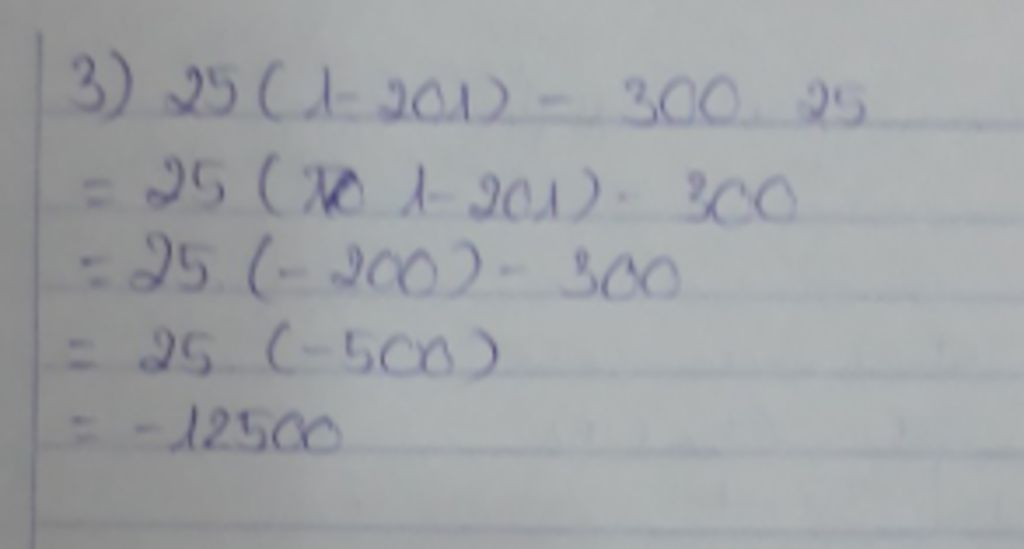 3) 25 ( 1 - 201 ) - 300 . 25
= 25 ( 1 - 201 ) - 300
= 25 ( - 200 ) - 300
= 25 ( - 500 )
= - 12500